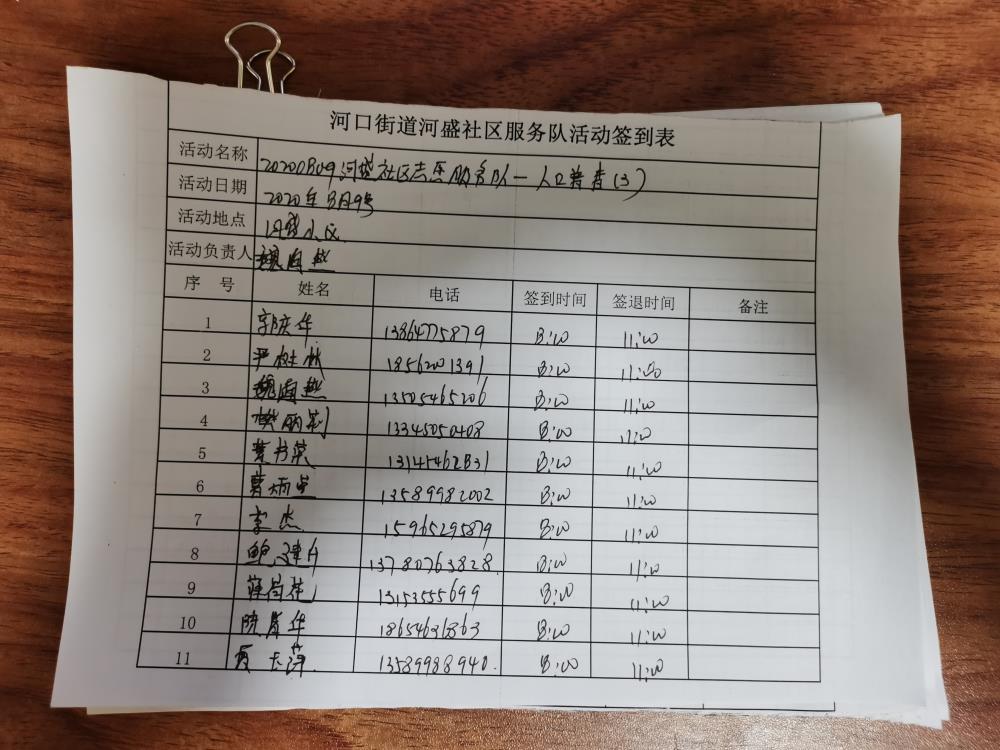 河口街道河盛社区服务队活动签到表
活动名称 20200809河盛社区志愿服务队一人口普查(3)
活动日期 2020年8月9号
活动地点 河盛小区
活动负责人 魏海燕
序 号 姓名 电话 签到时间 签退时间 备注
1 郭庆华 13864775879 8:00 11:00
2 严树林 1856201391 8:00 11:00
3 魏海燕 13505465206 8:00 11:00
4 樊丽莉 13345050408 8:00 11:00
5 13145462831 8:00 11:00
6 13589982002 8:00 11:00
7 李杰 15965295879 8:00 11:00
8 鲍建升 13780763828 8:00 11:00
9 薛荷花 13153555699 8:00 11:00
10 陈春华 18654636863 8:00 11:00
11 13589988940 8:00 11:00